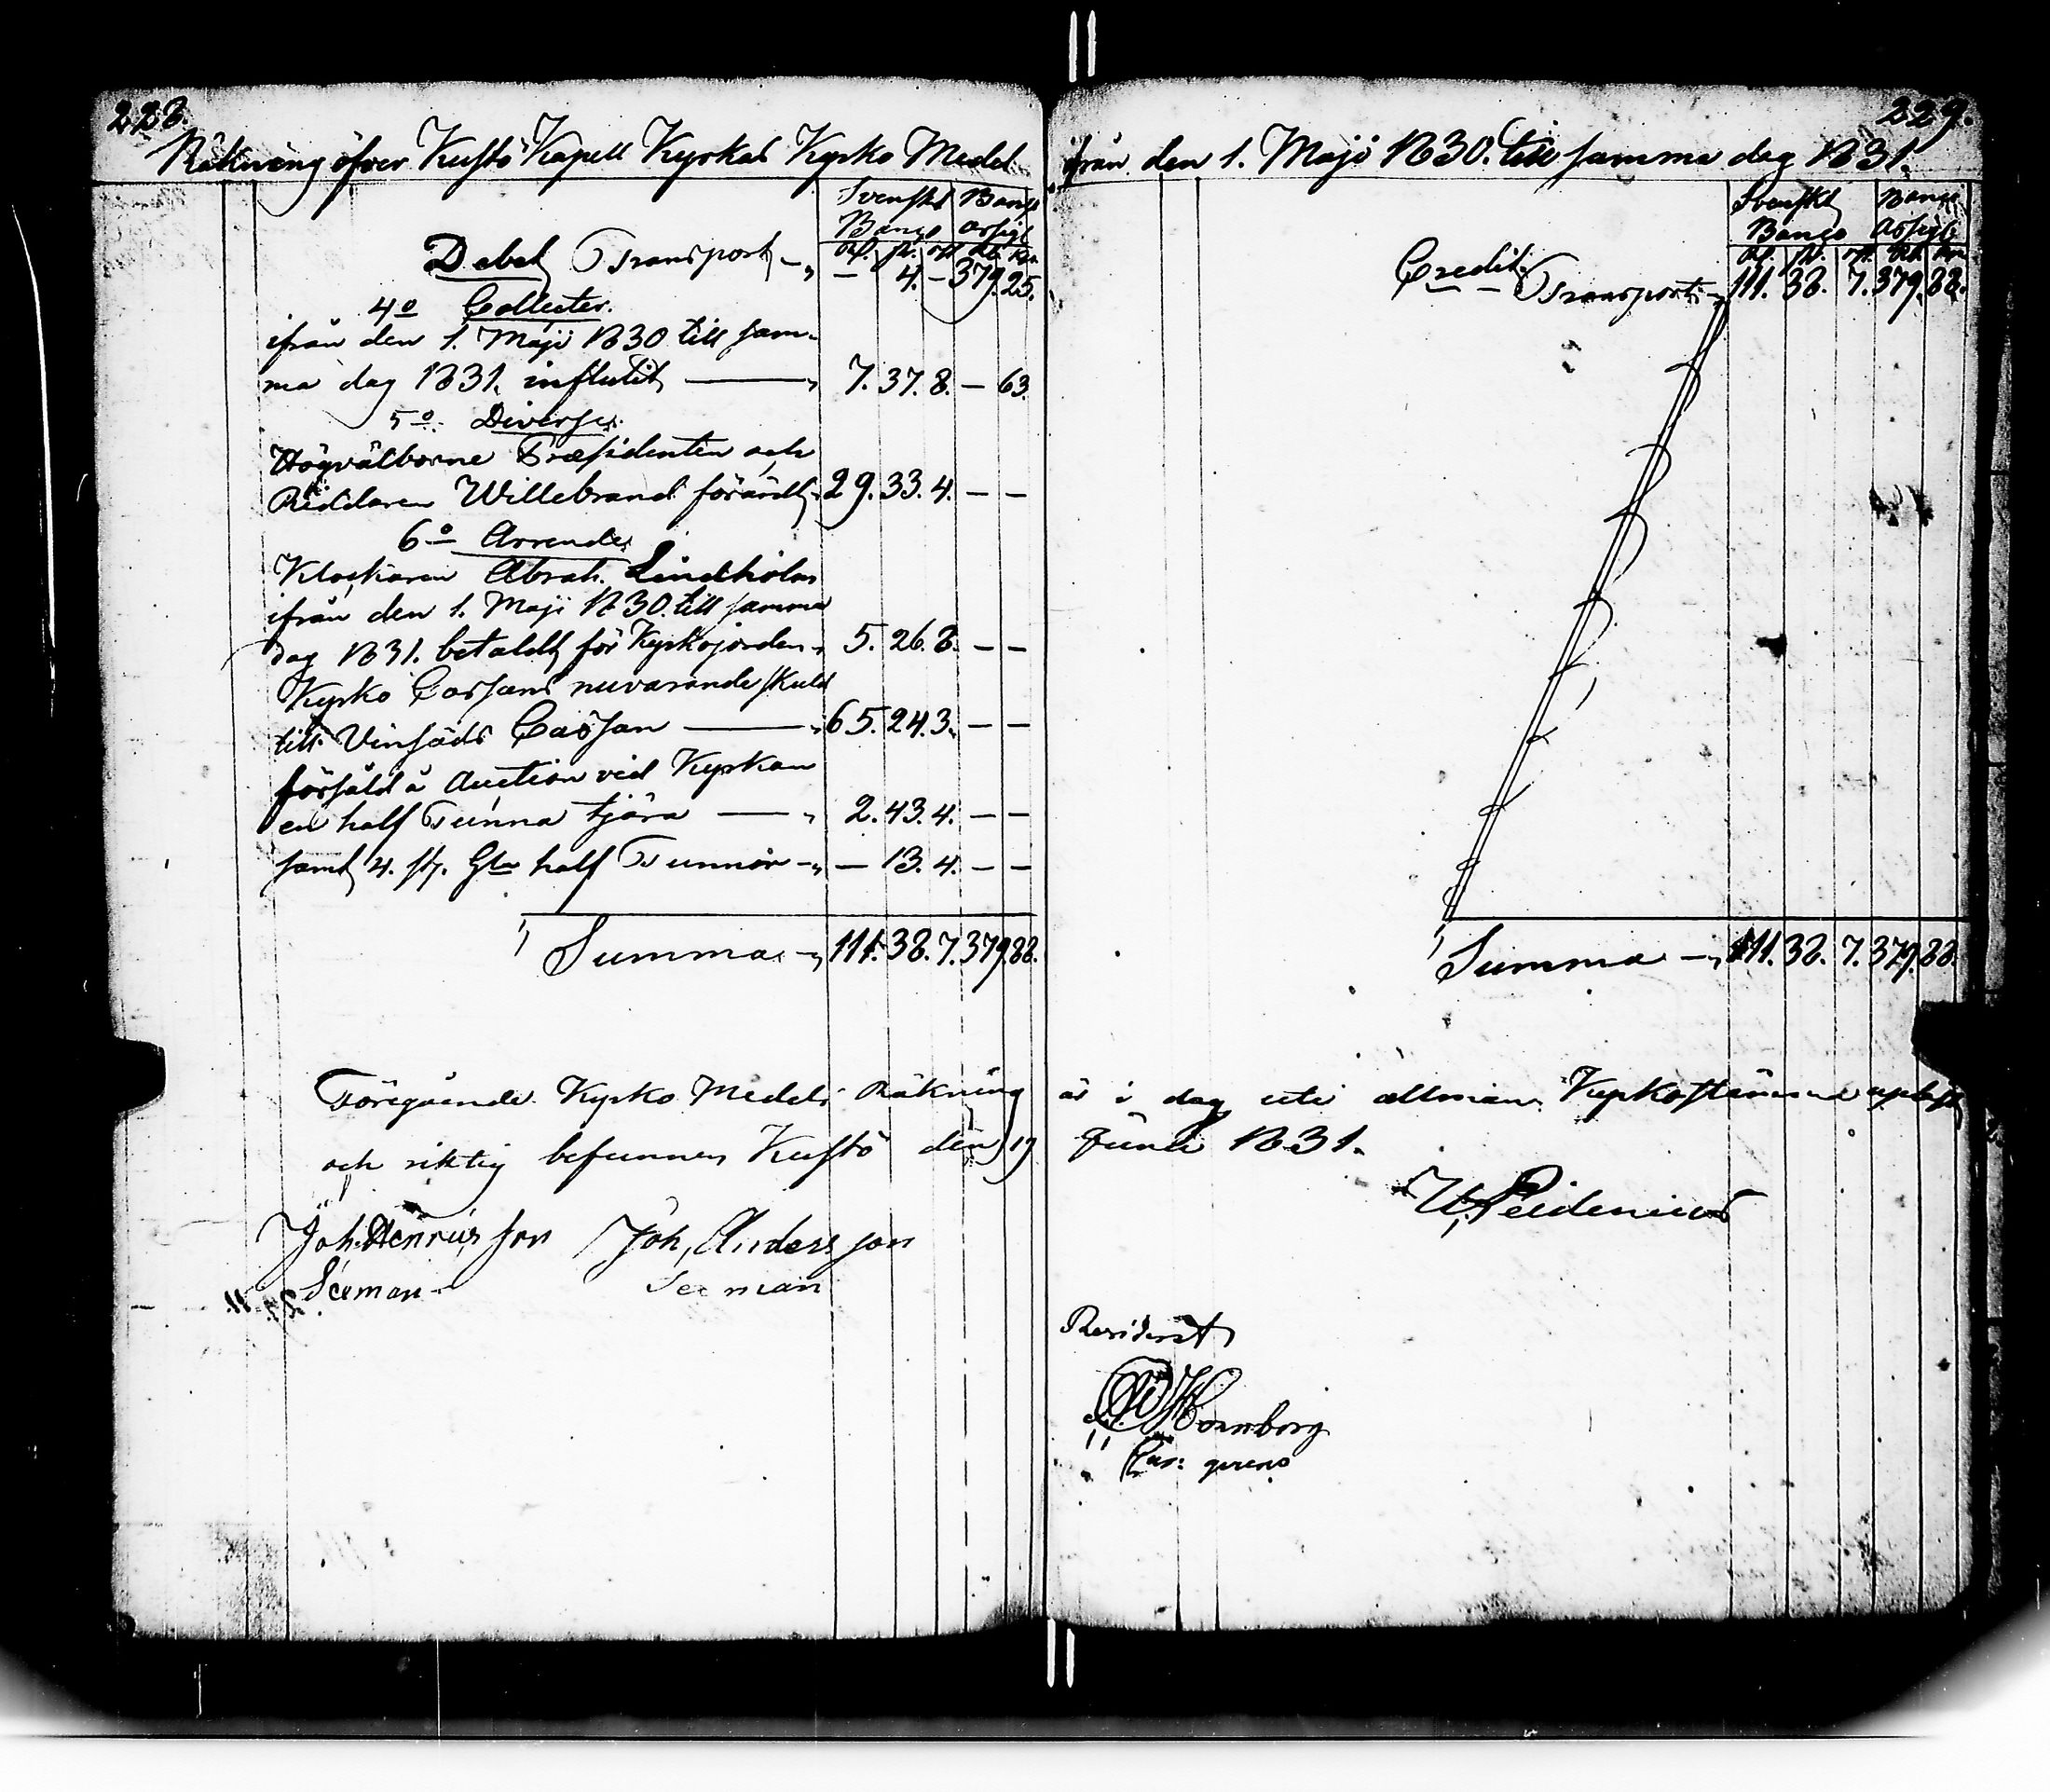 228.
Räkning öfver Kustö Kapell Kyrkas Kyrko Medel
Svenskt Banco
Banco Assigt
Rd. sk. rst. Rb. Kop.
Debet Transport — — 4. — 379. 25.
4o Collecter.
ifrån den 1. Maji 1830 till sam-
ma dag 1831. influtit — 7. 37. 8. — 63.
5o Diverse.
Högvälborne Præsidenten och
Riddaren Willebrand förärdt 29. 33. 4. — —
6o Arrende.
Klockaren Abrah. Lindholm
ifrån den 1. Maji 1830. till samma
dag 1831. betaldt för Kyrkojorden 5. 26. 8. — —
Kyrko Cassans nuvarande skuld
till Vinsäds Cassan — 65. 24. 3. — —
försåld å Auction vid Kyrkan
en half Tunna tjära — 2. 43. 4. — —
samt 4. st. Gla half Tunnor — — 13. 4. — —
Summa — 111. 38. 7. 379. 88.
Föregående Kyrko Medels Räkning
och riktig befunnen Kustö den 19
Joh. Henricsson Joh, Andersson
Seeman Seeman
229.
ifrån den 1. Maji 1830. till samma dag 1831.
Svenskt Banco
Banco Assigt
Rd. sk. rst. Rb. Kop.
Credit.
Transport — 111. 38. 7. 379. 88.
Summa — 111. 38. 7. 379. 88.
är i dag uti allmän Kyrkostämma upläst
Junii 1831.
Reviderat
Hornborg
Past: gerens